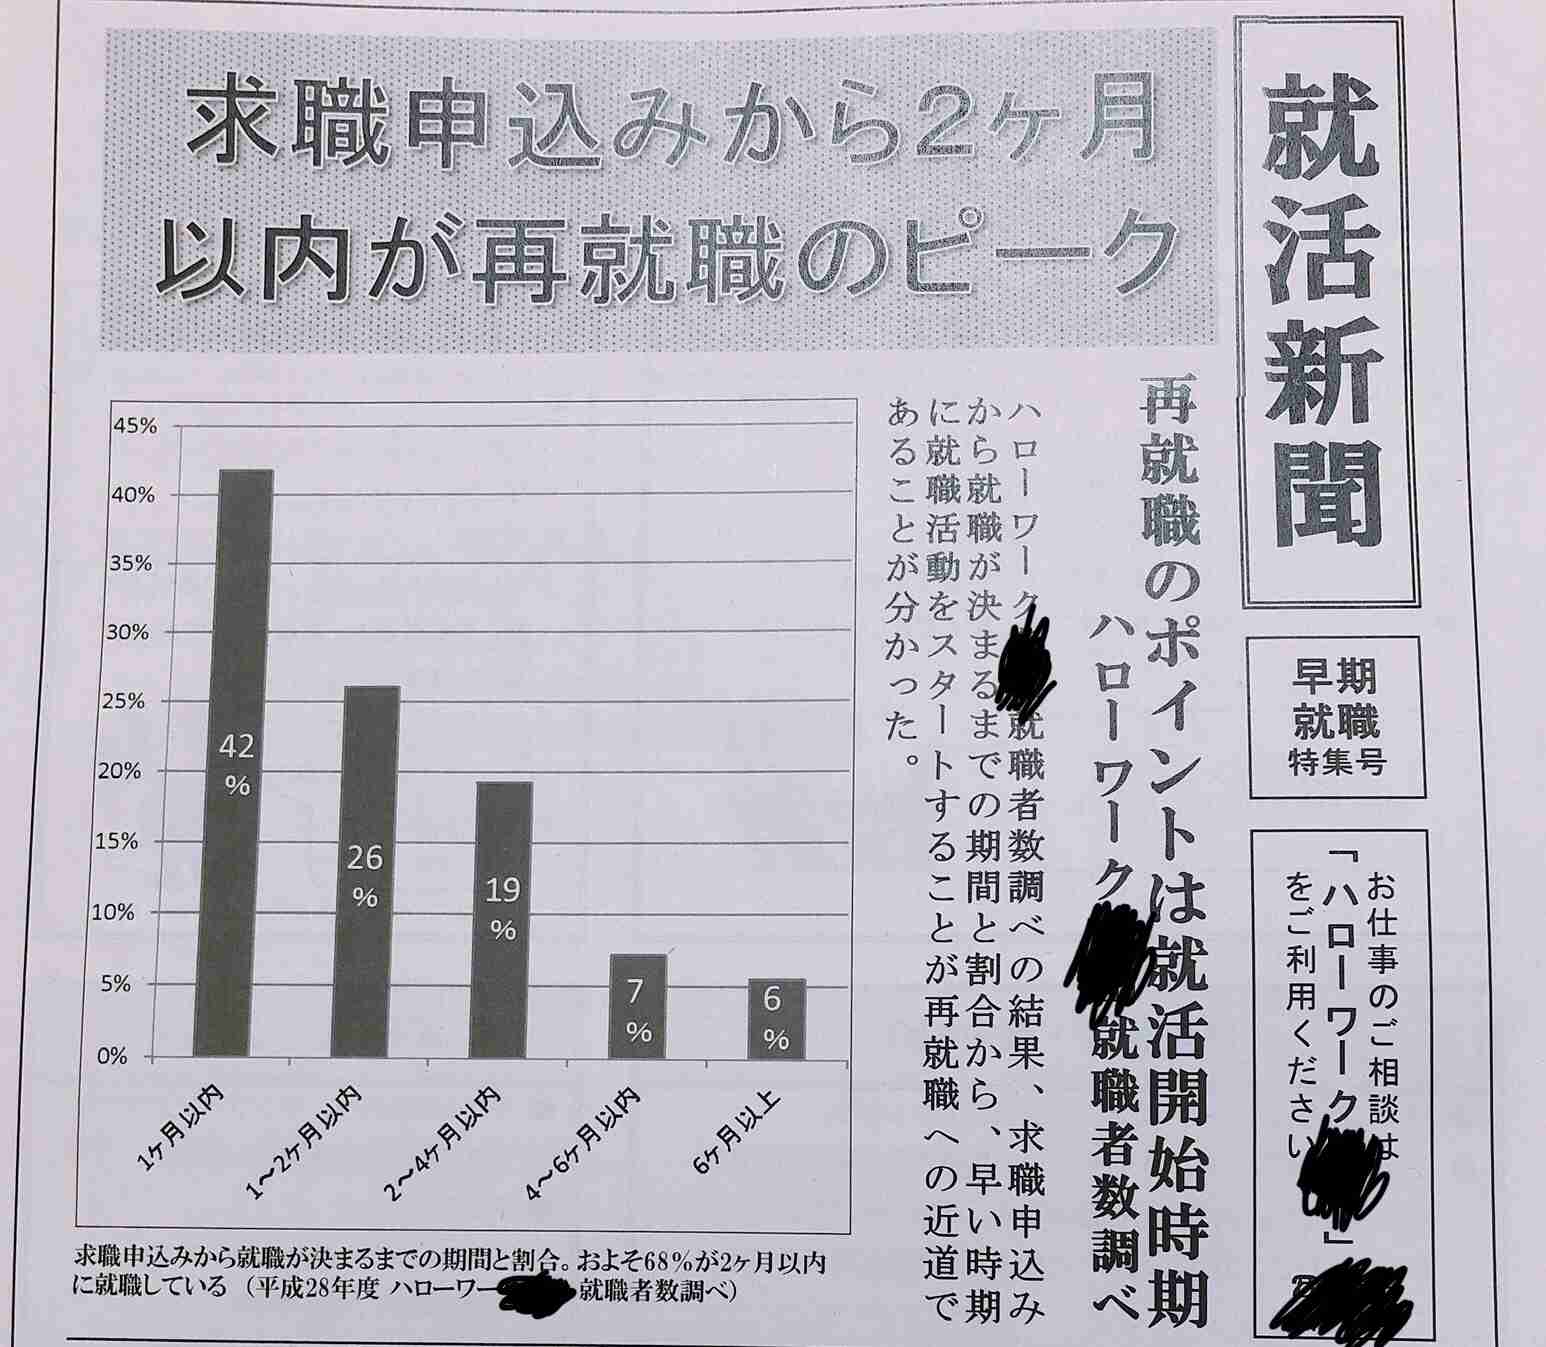 就活新聞
早期
就職
特集号
お仕事のご相談は
「ハローワーク」
をご利用ください
求職申込みから2ヶ月
以内が再就職のピーク
再就職のポイントは就活開始時期
ハローワーク 就職者数調べ
ハローワーク 就職者数調べの結果、求職申込み
から就職が決まるまでの期間と割合から、早い時期
に就職活動をスタートすることが再就職への近道で
あることが分かった。
45%
40%
35%
30%
25%
20%
15%
10%
5%
0%
42
%
26
%
19
%
7
%
6
%
1ヶ月以内
1～2ヶ月以内
2～4ヶ月以内
4～6ヶ月以内
6ヶ月以上
求職申込みから就職が決まるまでの期間と割合。およそ68%が2ヶ月以内
に就職している（平成28年度 ハローワー 就職者数調べ）